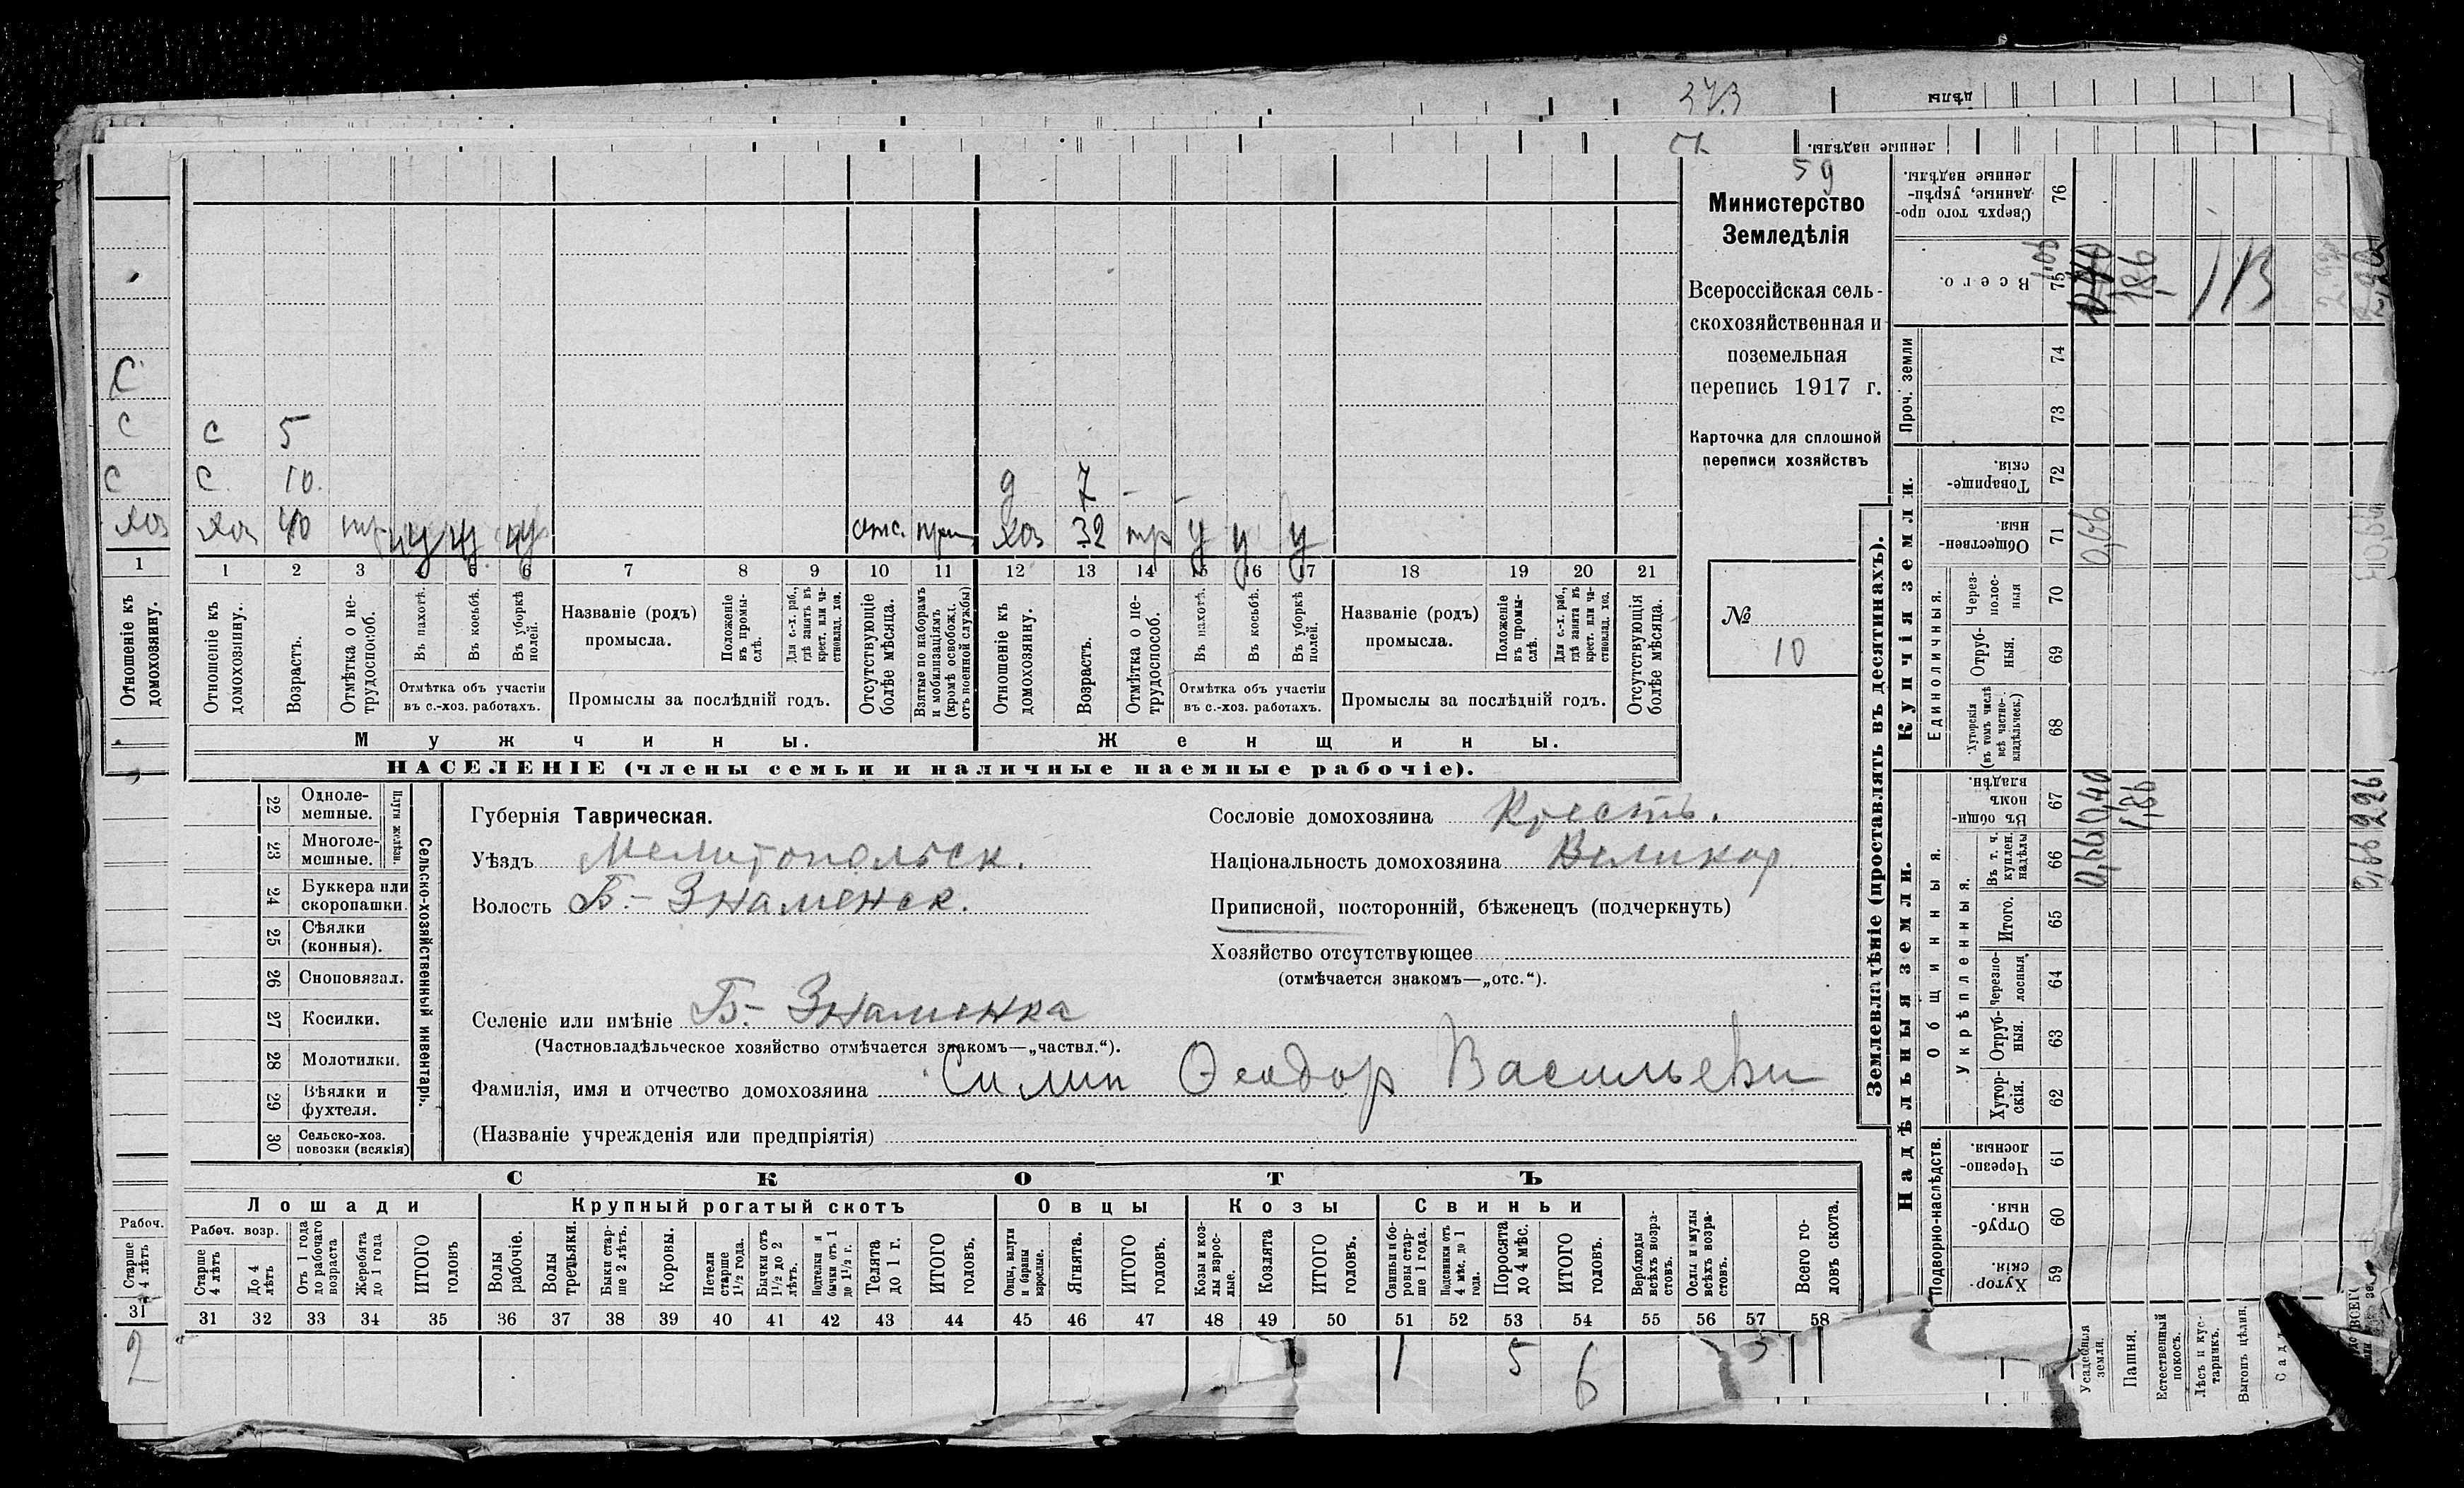 59
Министерство
Земледѣлія
Всероссійская сель-
скохозяйственная и
поземельная
перепись 1917 г.
Карточка для сплошной
переписи хозяйствъ
№
10
С
С
С
Хоз
1
Отношеніе къ
домохозяину.
С 5
С 10.
Хоз 40 тр у у у отс.
д 7 - -
Хоз 32 тр у у у
1 2 3 4 5 6 7 8 9 10 11 12 13 14 15 16 17 18 19 20 21
Отношеніе къ домохозяину.
Возрастъ.
Отмѣтка о не-трудоспособ.
Въ пахотѣ.
Въ косьбѣ.
Въ уборкѣ полей.
Отмѣтка объ участіи въ с.-хоз. работахъ.
Названіе (родъ) промысла.
Положеніе въ промы-слѣ.
Для с.-х. раб., гдѣ занятъ въ крест. или ча-стновлад. хоз.
Промыслы за послѣдній годъ.
Отсутствующіе болѣе мѣсяца.
Взятые по наборамъ и мобилизаціямъ (кромѣ освобожд. отъ военной службы)
Отношеніе къ домохозяину.
Возрастъ.
Отмѣтка о не-трудоспособ.
Въ пахотѣ.
Въ косьбѣ.
Въ уборкѣ полей.
Отмѣтка объ участіи въ с.-хоз. работахъ.
Названіе (родъ) промысла.
Положеніе въ промы-слѣ.
Для с.-х. раб., гдѣ занята въ крест. или ча-стновлад. хоз.
Промыслы за послѣдній годъ.
Отсутствующія болѣе мѣсяца.
Мужчины.
Женщины.
НАСЕЛЕНІЕ (члены семьи и наличные наемные рабочіе).
22 Одноле-мешные.
23 Многоле-мешные.
Плуги желѣзн.
24 Буккера или скоропашки.
25 Сѣялки (конныя).
26 Сноповязал.
27 Косилки.
28 Молотилки.
29 Вѣялки и фухтеля.
30 Сельско-хоз. повозки (всякія)
Сельско-хозяйственный инвентарь.
Губернія Таврическая.
Уѣздъ Мелитопольск.
Волость Б.- Знаменск.
Селеніе или имѣніе Б.- Знаменка
(Частновладѣльческое хозяйство отмѣчается знакомъ—„частвл.“).
Фамилія, имя и отчество домохозяина Силин Ѳеодор Васильевич
(Названіе учрежденія или предпріятія)
Сословіе домохозяина Кресть.
Національность домохозяина Великор
Приписной, посторонній, бѣженецъ (подчеркнуть)
Хозяйство отсутствующее
(отмѣчается знакомъ—„отс.“).
СКОТЪ
Лошади
Крупный рогатый скотъ
Овцы
Козы
Свиньи
Рабоч.
Старше 4 лѣтъ
31
2
Рабоч. возр.
Старше 4 лѣтъ
До 4 лѣтъ
Отъ 1 года до рабочаго возраста
Жеребята до 1 года
ИТОГО головъ
Волы рабочіе.
Волы третьяки.
Быки стар-ше 2 лѣтъ.
Коровы.
Нетели старше 1½ года.
Бычки отъ 1½ до 2 лѣтъ.
Подтелки и бычки отъ 1 до 1½ г.
Телята до 1 г.
ИТОГО головъ.
Овцы, валухи и бараны взрослые.
Ягнята.
ИТОГО головъ.
Козы и коз-лы взрос-лые.
Козлята
ИТОГО головъ.
Свиньи и бо-ровы стар-ше 1 года.
Подсвинки отъ 4 мѣс. до 1 года.
Поросята до 4 мѣс.
ИТОГО головъ.
Верблюды всѣхъ возра-стовъ.
Ослы и мулы всѣхъ возра-стовъ.
Всего го-ловъ скота.
31 32 33 34 35 36 37 38 39 40 41 42 43 44 45 46 47 48 49 50 51 52 53 54 55 56 57 58
1 5 6
Землевладѣніе (проставлять въ десятинахъ).
Надѣльныя земли.
Купчія земли.
Подворно-наслѣдств.
Общинныя.
Укрѣпленныя.
Единоличныя.
Проч. земли
Хутор-скія. 59
Отруб-ныя. 60
Черезпо-лосныя 61
Хутор-скія. 62
Отруб-ныя. 63
Черезпо-лосныя 64
Итого. 65
Въ т. ч. куплен. надѣлы 66
Въ общи-номъ владѣн. 67
Хуторскія (въ томъ числѣ всѣ частно-владѣльческ.) 68
Отруб-ныя. 69
Через-полос-ныя 70
Обществен-ныя. 71
Товарище-скія. 72
73
74
Всего. 75
Сверхъ того про-данные, укрѣп-ленные надѣлы. 76
Усадебныя земли.
Пашня.
Естественный покосъ.
Лѣсъ и кус-тарникъ.
Выгонъ цѣлин.
0,66 0,40
1,86
0,66
1,06
1,86
0,66 2,26